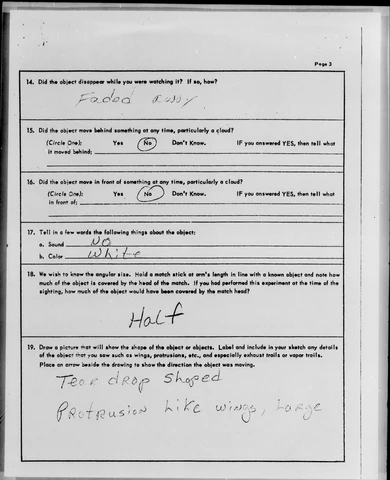 Page 3
14. Did the object disappear while you were watching it? If so, how?
Faded away.
15. Did the object move behind something at any time, particularly a cloud?
(Circle One): Yes No Don't Know. IF you answered YES, then tell what
it moved behind:
16. Did the object move in front of something at any time, particularly a cloud?
(Circle One): Yes No Don't Know. IF you answered YES, then tell what
in front of;
17. Tell in a few words the following things about the object:
a. Sound NO
b. Color White
18. We wish to know the angular size. Hold a match stick at arm's length in line with a known object and note how
much of the object is covered by the head of the match. If you had performed this experiment at the time of the
sighting, how much of the object would have been covered by the match head?
Half
19. Draw a picture that will show the shape of the object or objects. Label and include in your sketch any details
of the object that you saw such as wings, protrusions, etc., and especially exhaust trails or vapor trails.
Place an arrow beside the drawing to show the direction the object was moving.
Tear drop shaped
Protrusion like wings, large